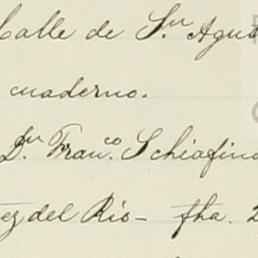 Calle de Sn Agus
cuaderno.
Dn Franco. Schiafino
tez del Rio- fha. 2